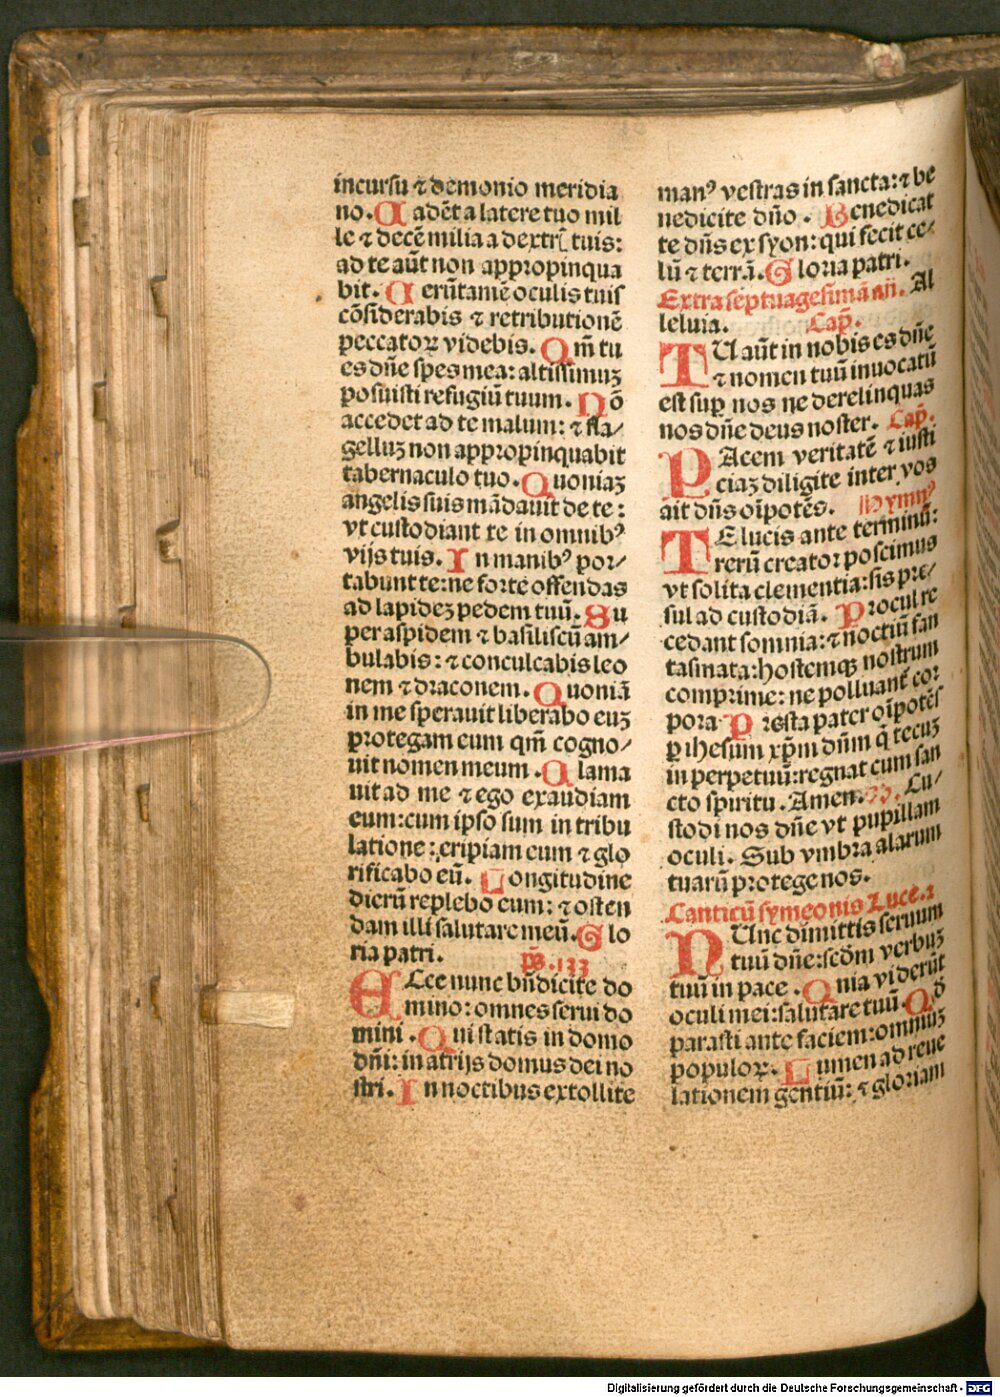 incursu ⁊ demonio meridia
no. Cadēt a latere tuo mil
le ⁊ decē milia a dextrꝭ tuis:
ad te aūt non appropinqua
bit. Uerūtamē oculis tuis
cōsiderabis ⁊ retributionē
peccatoꝝ videbis. Qm̄ tu
es dn̄e spes mea: altissimuꝫ
posuisti refugiū tuum. Nō
accedet ad te malum: ⁊ fla/
gelluꝫ non appropinquabit
tabernaculo tuo. Quoniaꝫ
angelis suis mādauit de te:
vt custodiant te in omnibꝰ
vijs tuis. In manibꝰ por/
tabunt te: ne forte offendas
ad lapideꝫ pedem tuū. Su
per aspidem ⁊ basiliscū am/
bulabis: ⁊ conculcabis leo
nem ⁊ draconem. Quoniā
in me sperauit liberabo euꝫ
protegam eum qm̄ cogno/
uit nomen meum. Clama
uit ad me ⁊ ego exaudiam
eum: cum ipso sum in tribu
latione: eripiam eum ⁊ glo
rificabo eū. Longitudine
dierū replebo eum: ⁊ osten
dam illi salutare meū. Glo
ria patri. ps̄. 133
ECce nunc bn̄dicite do
mino: omnes serui do
mini. Qui statis in domo
dn̄i: in atrijs domus dei no
stri. In noctibus extollite
manꝰ vestras in sancta: ⁊ be
nedicite dn̄o. Benedicat
te dn̄s ex syon: qui fecit ce/
lū ⁊ terrā. Gloria patri.
Extra septuagesimā añ. Al
leluia. Cap̄.
TU aūt in nobis es dn̄e
⁊ nomen tuū inuocatū
est suꝑ nos ne derelinquas
nos dn̄e deus noster. Cap̄.
PAcem veritatē ⁊ iusti
ciaꝫ diligite inter vos
ait dn̄s oīpotēs. Hymnꝰ
TE lucis ante terminū:
rerū creator poscimus
vt solita clementia: sis pre/
sul ad custodiā. Procul re
cedant somnia: ⁊ noctiū fan
tasmata: hostemqꝫ nostrum
comprime: ne polluant̄ cor
pora. Presta pater oīpotēs
ꝑ ihesum xp̄m dn̄m q̄ tecuꝫ
in perpetuū: regnat cum san
cto spiritu. Amen. V. Cu/
stodi nos dn̄e vt pupillam
oculi. Sub vmbra alarum
tuarū protege nos.
Canticū symeonis Luce. 2
NUnc dimittis seruum
tuū dn̄e: scd̄m verbuꝫ
tuū in pace. Quia viderūt
oculi mei: salutare tuū. Qd̄
parasti ante faciem: omniuꝫ
populoꝝ. Lumen ad reue
lationem gentiū: ⁊ gloriam
Digitalisierung gefördert durch die Deutsche Forschungsgemeinschaft - DFG